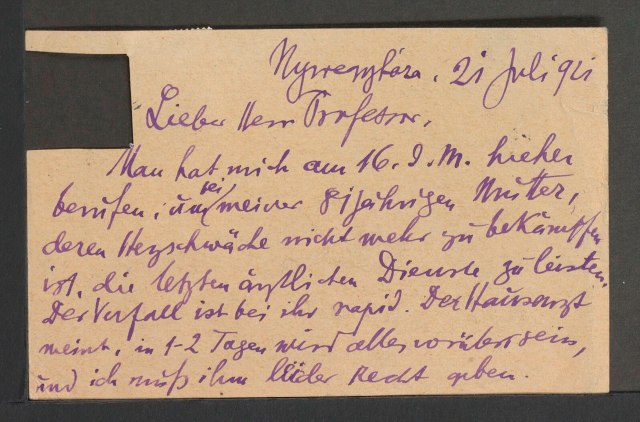 Nyiregyháza, 21 Juli 921
Lieber Herr Professor,
Man hat mich am 16. d. M. hieher
berufen, um bei meiner 81jährigen Mutter,
deren Herzschwäche nicht mehr zu bekämpfen
ist, die letzten ärztlichen Dienste zu leisten.
Der Verfall ist bei ihr rapid. Der Hausarzt
meint, in 1-2 Tagen wird alles vorüber sein,
und ich muß ihm leider Recht geben.